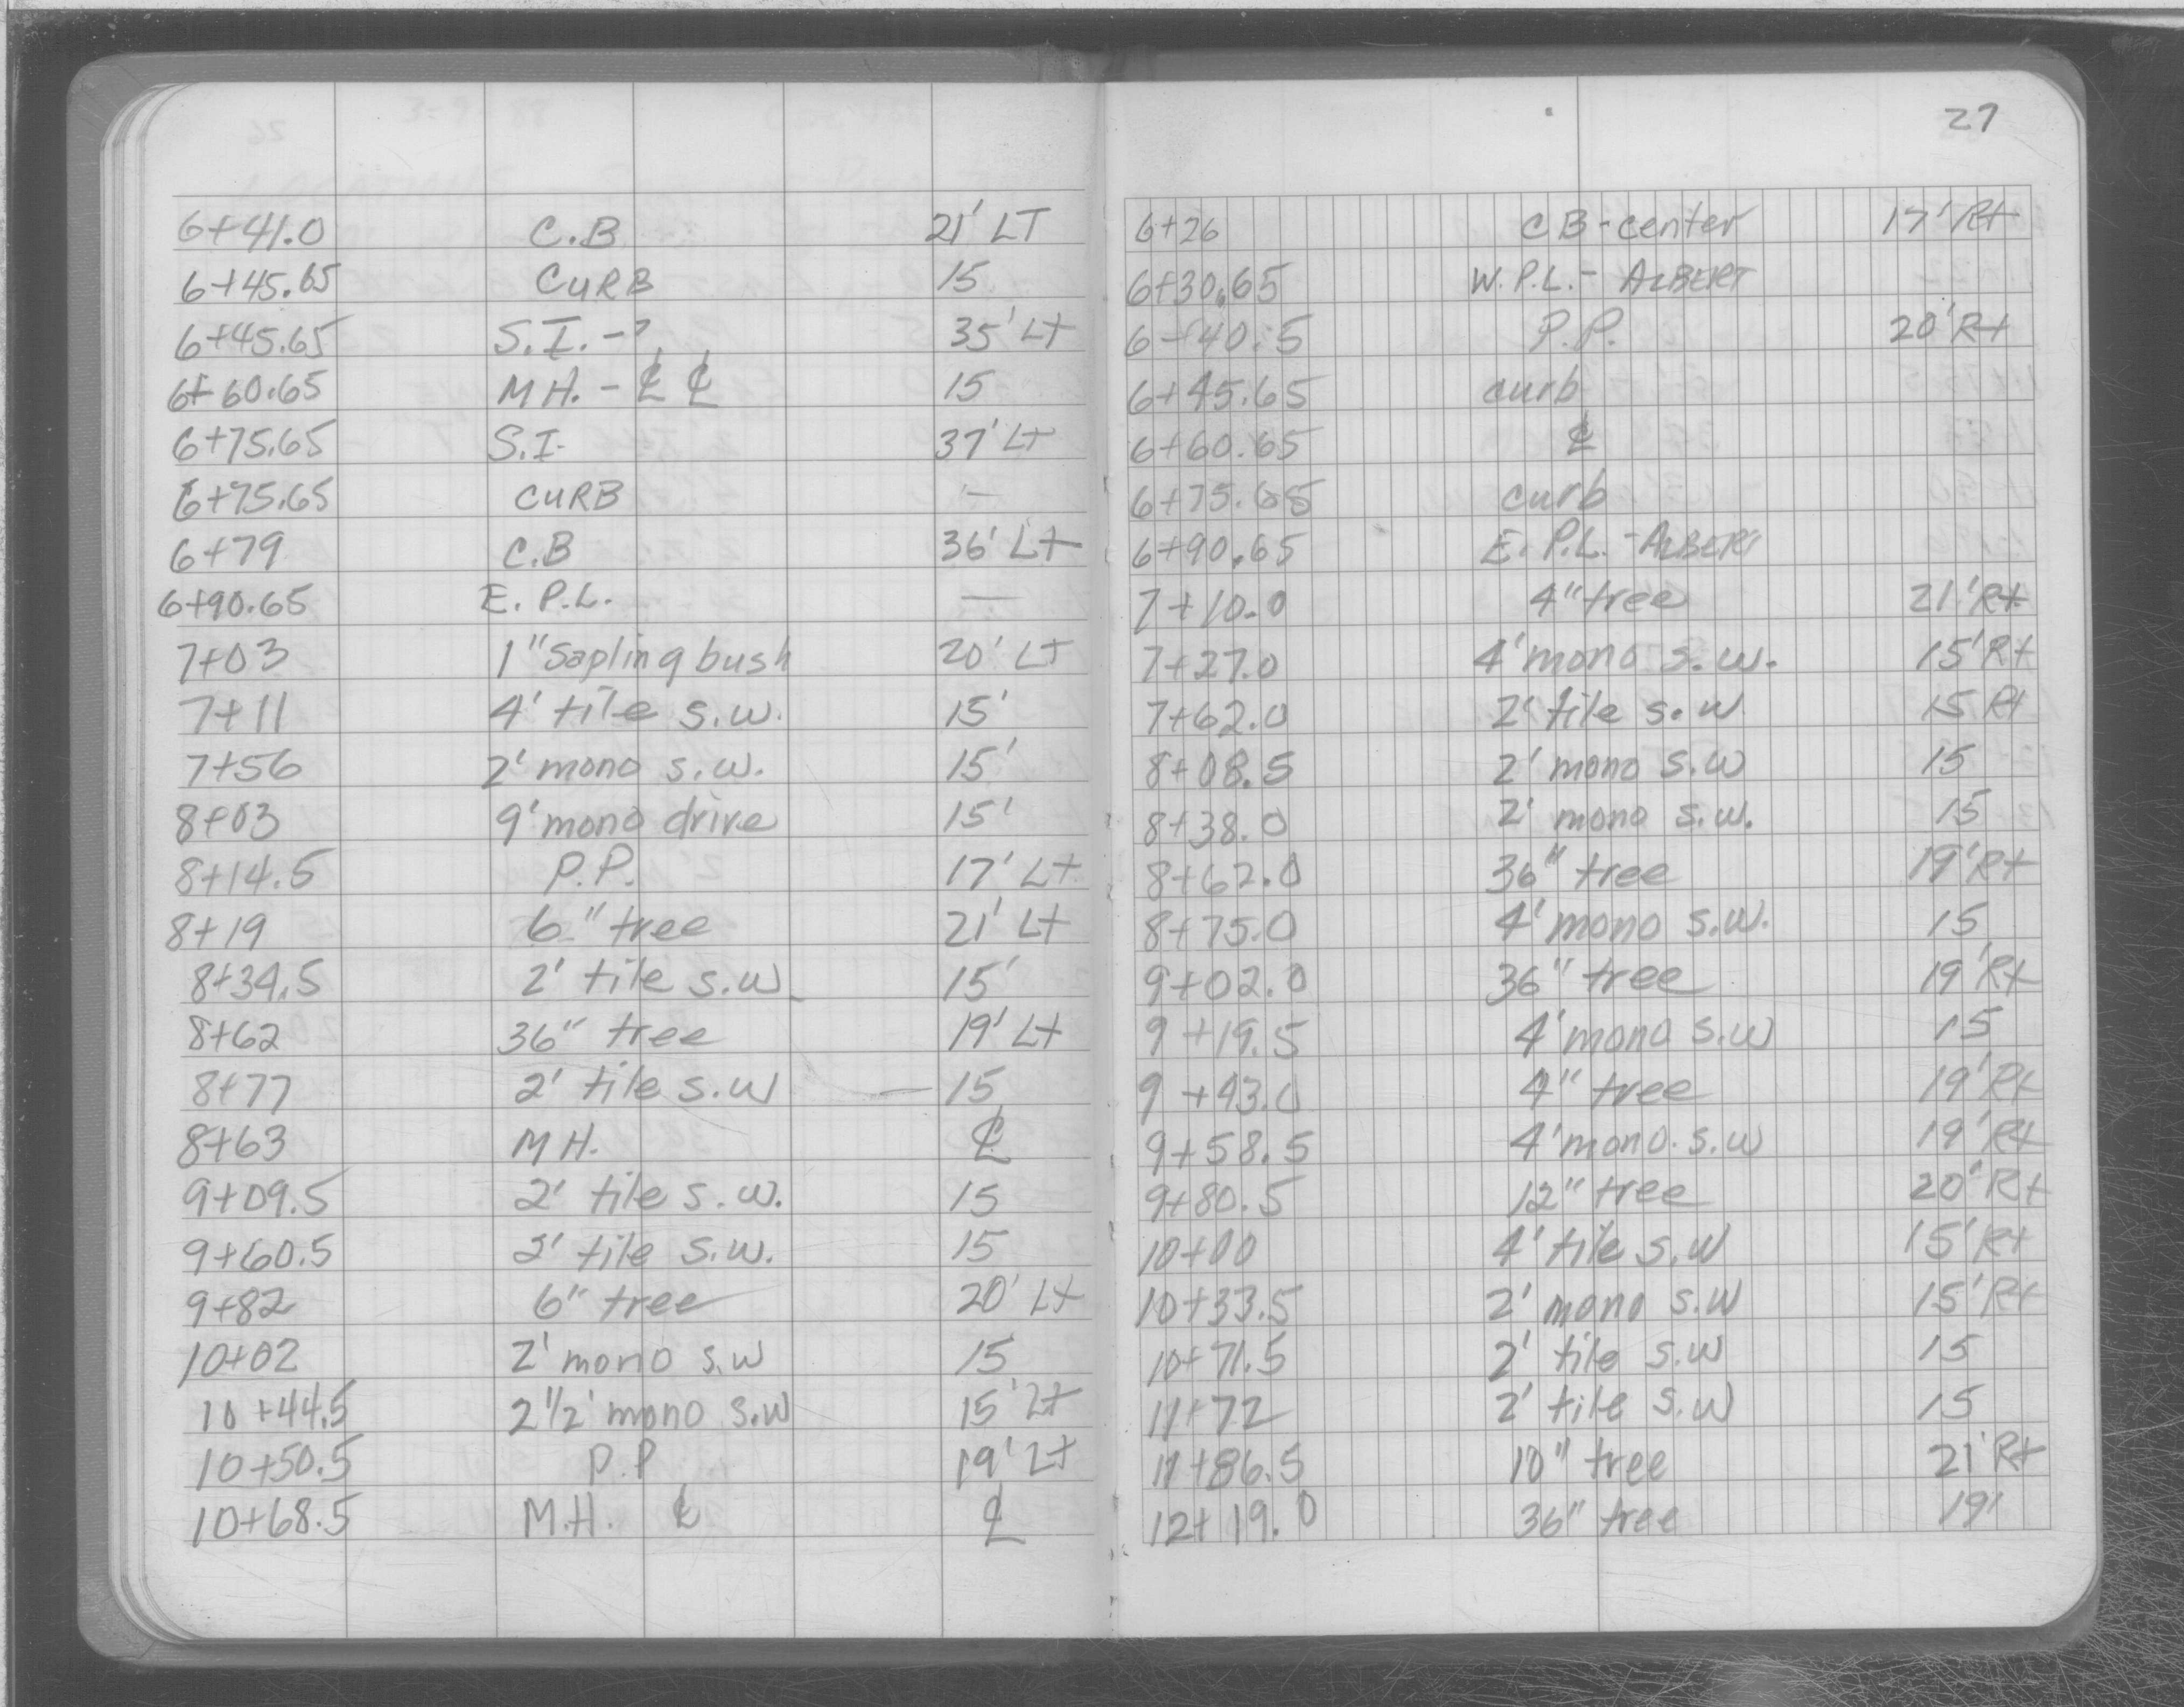 6+41.0 C.B 21' LT
6+45.65 CURB 15
6+45.65 S.I. -? 35' Lt
6+60.65 MH. - ℄ ℄ 15
6+75.65 S.I. 37' Lt
6+75.65 CURB —
6+79 C.B 36' Lt
6+90.65 E. P.L. —
7+03 1" Sapling bush 20' Lt
7+11 4' tile s.w. 15'
7+56 2' mono s.w. 15'
8+03 9' mono drive 15'
8+14.5 P.P. 17' Lt
8+19 6" tree 21' Lt
8+34.5 2' tile s.w. 15'
8+62 36" tree 19' Lt
8+77 2' tile s.w — 15
8+63 MH. ℄
9+09.5 2' tile s.w. 15
9+60.5 2' tile s.w. 15
9+82 6" tree 20' Lt
10+02 2' mono s.w 15
10+44.5 2 1/2' mono s.w 15' Lt
10+50.5 P.P 19' Lt
10+68.5 M.H. ℄ ℄
27
6+26 CB-center 17' Rt
6+30.65 W.P.L. - ALBERT
6+40.5 P.P. 20' Rt
6+45.65 curb
6+60.65 ℄
6+75.65 curb
6+90.65 E. P.L. - ALBERT
7+10.0 4" tree 21' Rt
7+27.0 4' mono s.w. 15' Rt
7+62.0 2' tile s.w 15 Rt
8+08.5 2' mono s.w 15
8+38.0 2' mono s.w. 15
8+62.0 36" tree 19' Rt
8+75.0 4' mono s.w. 15
9+02.0 36" tree 19' Rt
9+19.5 4' mono s.w 15
9+43.0 4" tree 19' Rt
9+58.5 4' mono s.w 19' Rt
9+80.5 12" tree 20' Rt
10+00 4' tile s.w 15' Rt
10+33.5 2' mono s.w 15' Rt
10+71.5 2' tile s.w 15
11+72 2' tile s.w 15
11+86.5 10" tree 21' Rt
12+19.0 36" tree 19'